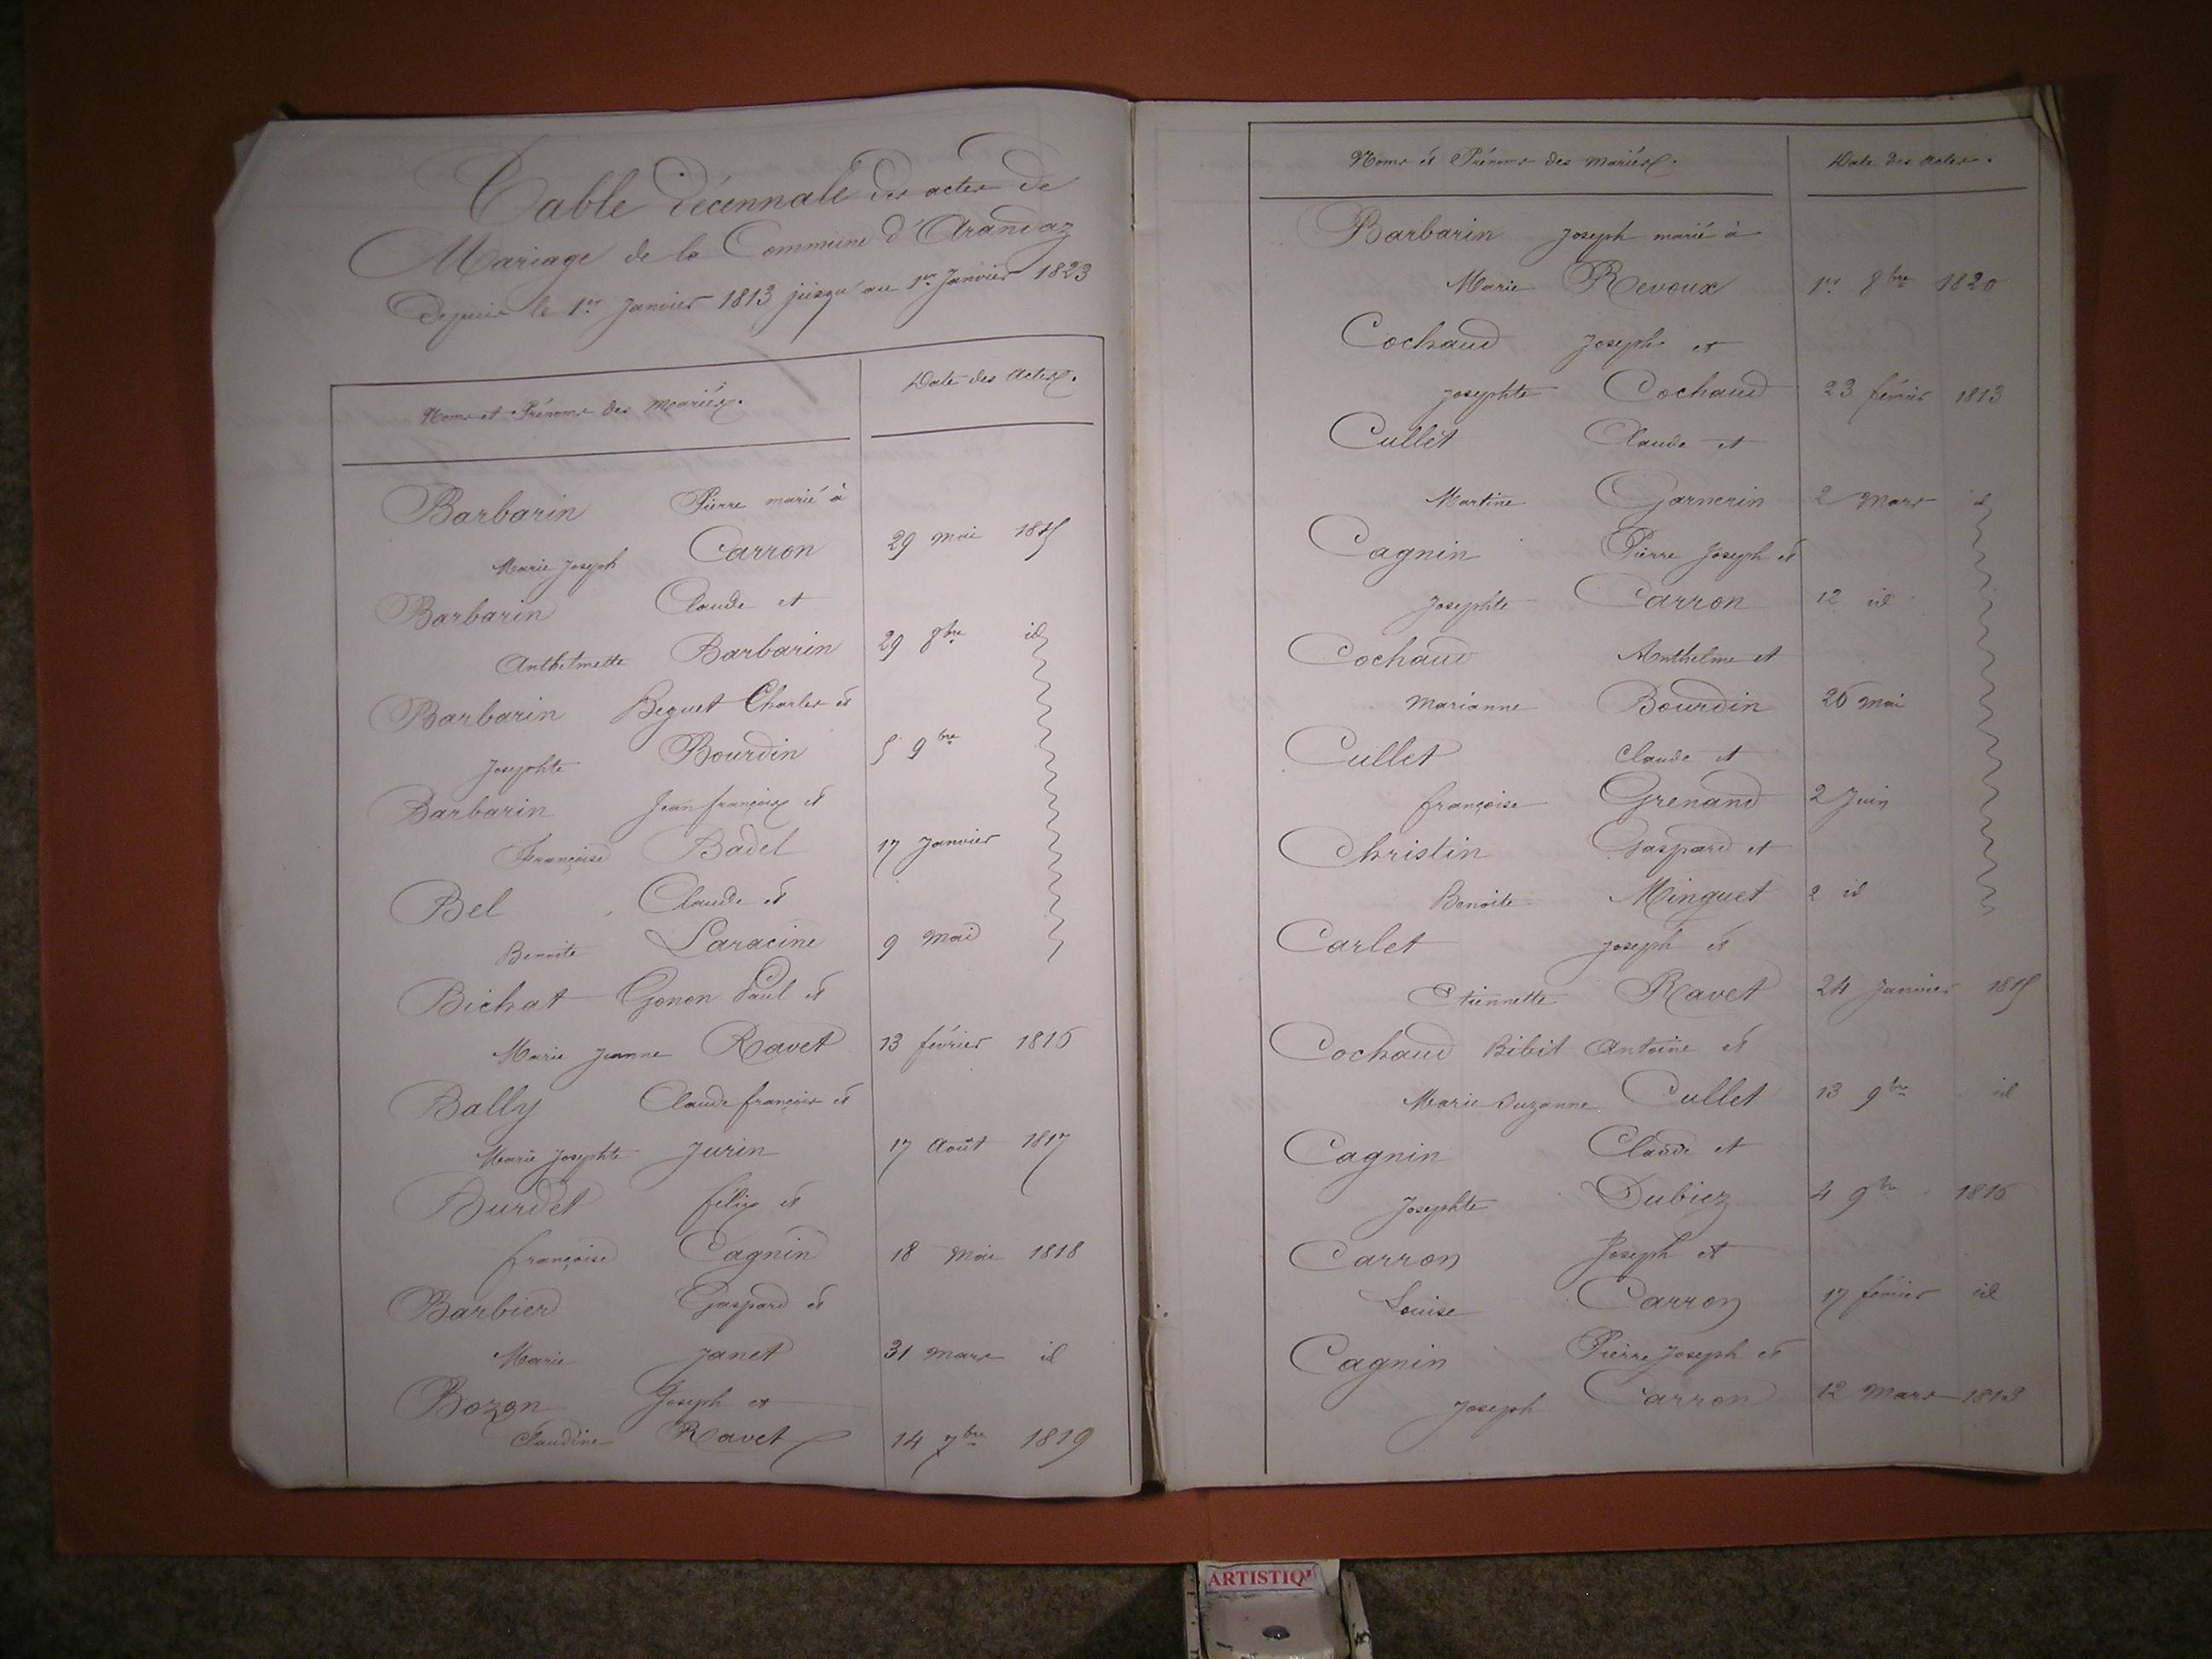 Table décennale des actes de
Mariage de la Commune d'Arandaz
Depuis le 1er Janvier 1813 jusqu'au 1er Janvier 1823
Noms et Prénoms des Mariés. Date des Actes.
Barbarin Pierre marié à
Marie Joseph Carron 29 mai 1815
Barbarin Claude et
Anthelmette Barbarin 29 8bre id
Barbarin Beguet Charles et
Josephte Bourdin 5 9bre
Barbarin Jean françois et
Françoise Badel 17 Janvier
Bel Claude et
Benoite Laracine 9 Mai
Bichat Gonon Paul et
Marie Jeanne Ravet 13 février 1816
Bally Claude françois et
Marie Josephte Jurin 17 Août 1817
Burdet félix et
françoise Cagnin 18 Mai 1818
Barbier Gaspard et
Marie Janet 31 Mars id
Bozon Joseph et
Claudine Ravet 14 7bre 1819
Noms et Prénoms des Mariés. Date des Actes.
Barbarin Joseph marié à
Marie Revoux 1er 8bre 1820
Cochaud Joseph et
Josephte Cochaud 23 février 1813
Cullet Claude et
Martine Garnerin 2 Mars id
Cagnin Pierre Joseph et
Josephte Carron 12 id
Cochaud Anthelme et
Marianne Bourdin 26 mai
Cullet Claude et
françoise Grenand 2 Juin
Christin Gaspard et
Benoite Minguet 2 id
Carlet Joseph et
Etiennette Ravet 24 Janvier 1815
Cochaud Bibit Antoine et
Marie Suzanne Cullet 13 9bre id
Cagnin Claude et
Josephte Dubiez 4 9bre 1816
Carron Joseph et
Louise Carron 17 février id
Cagnin Pierre Joseph et
Joseph Carron 12 Mars 1813
ARTISTIQ'